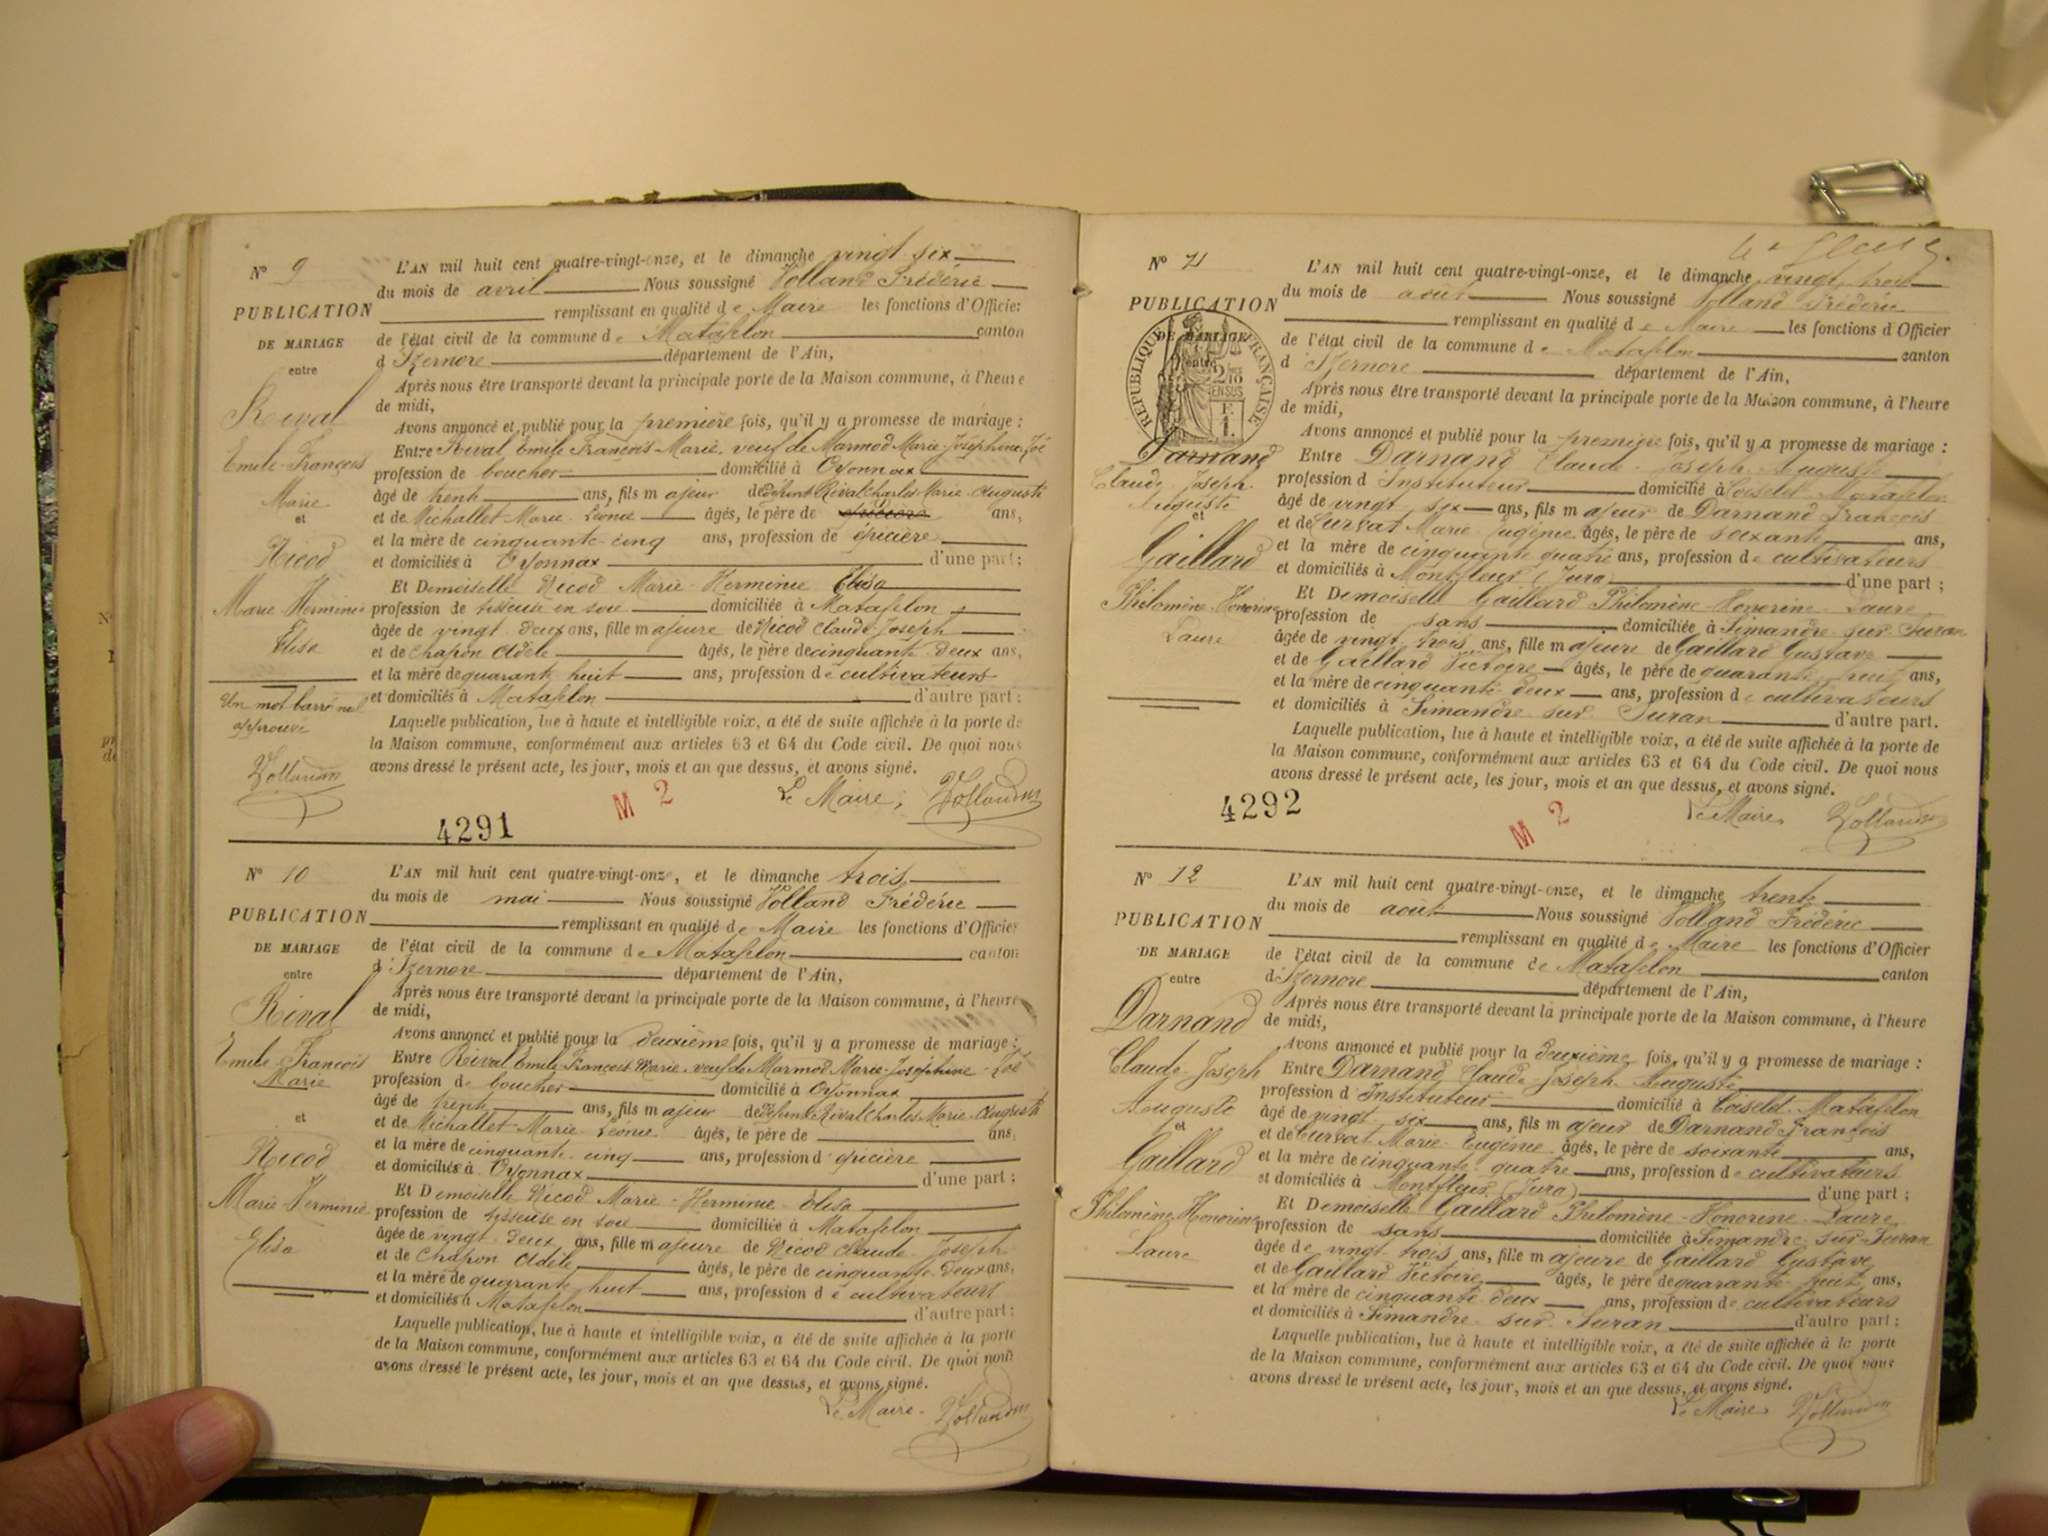 N° 9
PUBLICATION
DE MARIAGE
entre
Rival
Emile-François
Marie
et
Nicod
Marie-Herminie
Elisa
Un mot barré nul
approuvé
Vollandm
L'AN mil huit cent quatre-vingt-onze, et le dimanche vingt-six
du mois de avril Nous soussigné Volland Frédéric
remplissant en qualité de Maire les fonctions d'Officier
de l'état civil de la commune de Matafelon canton
d'Izernore département de l'Ain,
Après nous être transporté devant la principale porte de la Maison commune, à l'heure
de midi,
Avons annoncé et publié pour la première fois, qu'il y a promesse de mariage :
Entre Rival Emile François-Marie, veuf de Marmod Marie-Joséphine-Zoé
profession de boucher domicilié à Oyonnax
âgé de trente ans, fils majeur de défunt Rival Charles Marie-Auguste
et de Michallet-Marie-Léonie âgés, le père de ans,
et la mère de cinquante-cinq ans, profession de épicière
et domiciliés à Oyonnax d'une part;
Et Demoiselle Nicod Marie-Herminie Elisa
profession de tisseuse en soie domiciliée à Matafelon
âgée de vingt-deux ans, fille majeure de Nicod Claude-Joseph
et de Chapon Adèle âgés, le père de cinquante-deux ans,
et la mère de quarante-huit ans, profession de cultivateurs
et domiciliés à Matafelon d'autre part;
Laquelle publication, lue à haute et intelligible voix, a été de suite affichée à la porte de
la Maison commune, conformément aux articles 63 et 64 du Code civil. De quoi nous
avons dressé le présent acte, les jour, mois et an que dessus, et avons signé.
Le Maire, Vollandm
M 2
4291
N° 10
PUBLICATION
DE MARIAGE
entre
Rival
Emile-François
Marie
et
Nicod
Marie-Herminie
Elisa
L'AN mil huit cent quatre-vingt-onze, et le dimanche trois
du mois de mai Nous soussigné Volland Frédéric
remplissant en qualité de Maire les fonctions d'Officier
de l'état civil de la commune de Matafelon canton
d'Izernore département de l'Ain,
Après nous être transporté devant la principale porte de la Maison commune, à l'heure
de midi,
Avons annoncé et publié pour la deuxième fois, qu'il y a promesse de mariage :
Entre Rival Emile-François-Marie, veuf de Marmod Marie-Joséphine-Zoé
profession de boucher domicilié à Oyonnax
âgé de trente ans, fils majeur de défunt Rival Charles Marie-Auguste
et de Michallet-Marie-Léonie âgés, le père de ans,
et la mère de cinquante-cinq ans, profession d'épicière
et domiciliés à Oyonnax d'une part ;
Et Demoiselle Nicod Marie-Herminie-Elisa
profession de tisseuse en soie domiciliée à Matafelon
âgée de vingt-deux ans, fille majeure de Nicod Claude-Joseph
et de Chapon Adèle âgés, le père de cinquante-deux ans,
et la mère de quarante-huit ans, profession de cultivateurs
et domiciliés à Matafelon d'autre part ;
Laquelle publication, lue à haute et intelligible voix, a été de suite affichée à la porte
de la Maison commune, conformément aux articles 63 et 64 du Code civil. De quoi nous
avons dressé le présent acte, les jour, mois et an que dessus, et avons signé.
Le Maire. Vollandm
N° 11
PUBLICATION
DE MARIAGE
entre
RÉPUBLIQUE FRANÇAISE
Darnand
Claude-Joseph
Auguste
et
Gaillard
Philomène-Honorine
Laure
L'AN mil huit cent quatre-vingt-onze, et le dimanche vingt-trois
du mois de août Nous soussigné Volland Frédéric
remplissant en qualité de Maire les fonctions d'Officier
de l'état civil de la commune de Matafelon canton
d'Izernore département de l'Ain,
Après nous être transporté devant la principale porte de la Maison commune, à l'heure
de midi,
Avons annoncé et publié pour la première fois, qu'il y a promesse de mariage :
Entre Darnand Claude-Joseph-Auguste
profession d'Instituteur domicilié à Coiselet-Matafelon
âgé de vingt-six ans, fils majeur de Darnand François
et de Curvat Marie-Eugénie âgés, le père de soixante ans,
et la mère de cinquante-quatre ans, profession de cultivateurs
et domiciliés à Montfleur (Jura) d'une part ;
Et Demoiselle Gaillard Philomène-Honorine-Laure
profession de sans domiciliée à Simandre-sur-Suran
âgée de vingt-trois ans, fille majeure de Gaillard Gustave
et de Gaillard Victoire âgés, le père de quarante-huit ans,
et la mère de cinquante-deux ans, profession de cultivateurs
et domiciliés à Simandre-sur-Suran d'autre part.
Laquelle publication, lue à haute et intelligible voix, a été de suite affichée à la porte de
la Maison commune, conformément aux articles 63 et 64 du Code civil. De quoi nous
avons dressé le présent acte, les jour, mois et an que dessus, et avons signé.
Le Maire, Vollandm
4292
M 2
N° 12
PUBLICATION
DE MARIAGE
entre
Darnand
Claude-Joseph
Auguste
et
Gaillard
Philomène-Honorine
Laure
L'AN mil huit cent quatre-vingt-onze, et le dimanche trente
du mois de août Nous soussigné Volland Frédéric
remplissant en qualité de Maire les fonctions d'Officier
de l'état civil de la commune de Matafelon canton
d'Izernore département de l'Ain,
Après nous être transporté devant la principale porte de la Maison commune, à l'heure
de midi,
Avons annoncé et publié pour la deuxième fois, qu'il y a promesse de mariage :
Entre Darnand Claude-Joseph-Auguste
profession d'Instituteur domicilié à Coiselet-Matafelon
âgé de vingt-six ans, fils majeur de Darnand François
et de Curvat Marie-Eugénie âgés, le père de soixante ans,
et la mère de cinquante-quatre ans, profession de cultivateurs
et domiciliés à Montfleur (Jura) d'une part ;
Et Demoiselle Gaillard Philomène-Honorine-Laure
profession de sans domiciliée à Simandre-sur-Suran
âgée de vingt-trois ans, fille majeure de Gaillard Gustave
et de Gaillard Victoire âgés, le père de quarante-huit ans,
et la mère de cinquante-deux ans, profession de cultivateurs
et domiciliés à Simandre-sur-Suran d'autre part ;
Laquelle publication, lue à haute et intelligible voix, a été de suite affichée à la porte
de la Maison commune, conformément aux articles 63 et 64 du Code civil. De quoi nous
avons dressé le présent acte, les jour, mois et an que dessus, et avons signé.
Le Maire, Vollandm